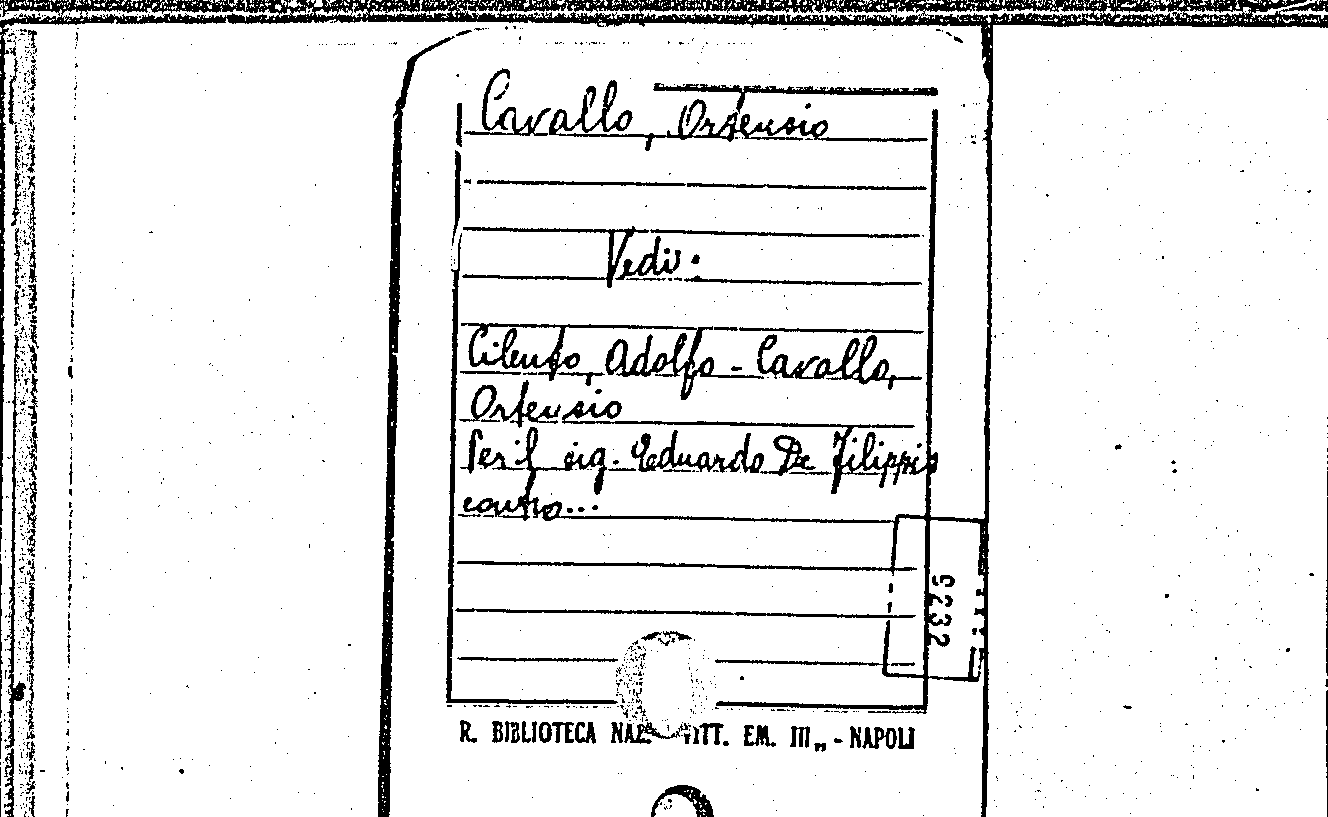 Cavallo, Ortensio
Vedi:
Cilento, Adolfo - Cavallo,
Ortensio
Per il sig. Eduardo De Filippis
contro...
R. BIBLIOTECA NAZ. VITT. EM. III„ - NAPOLI